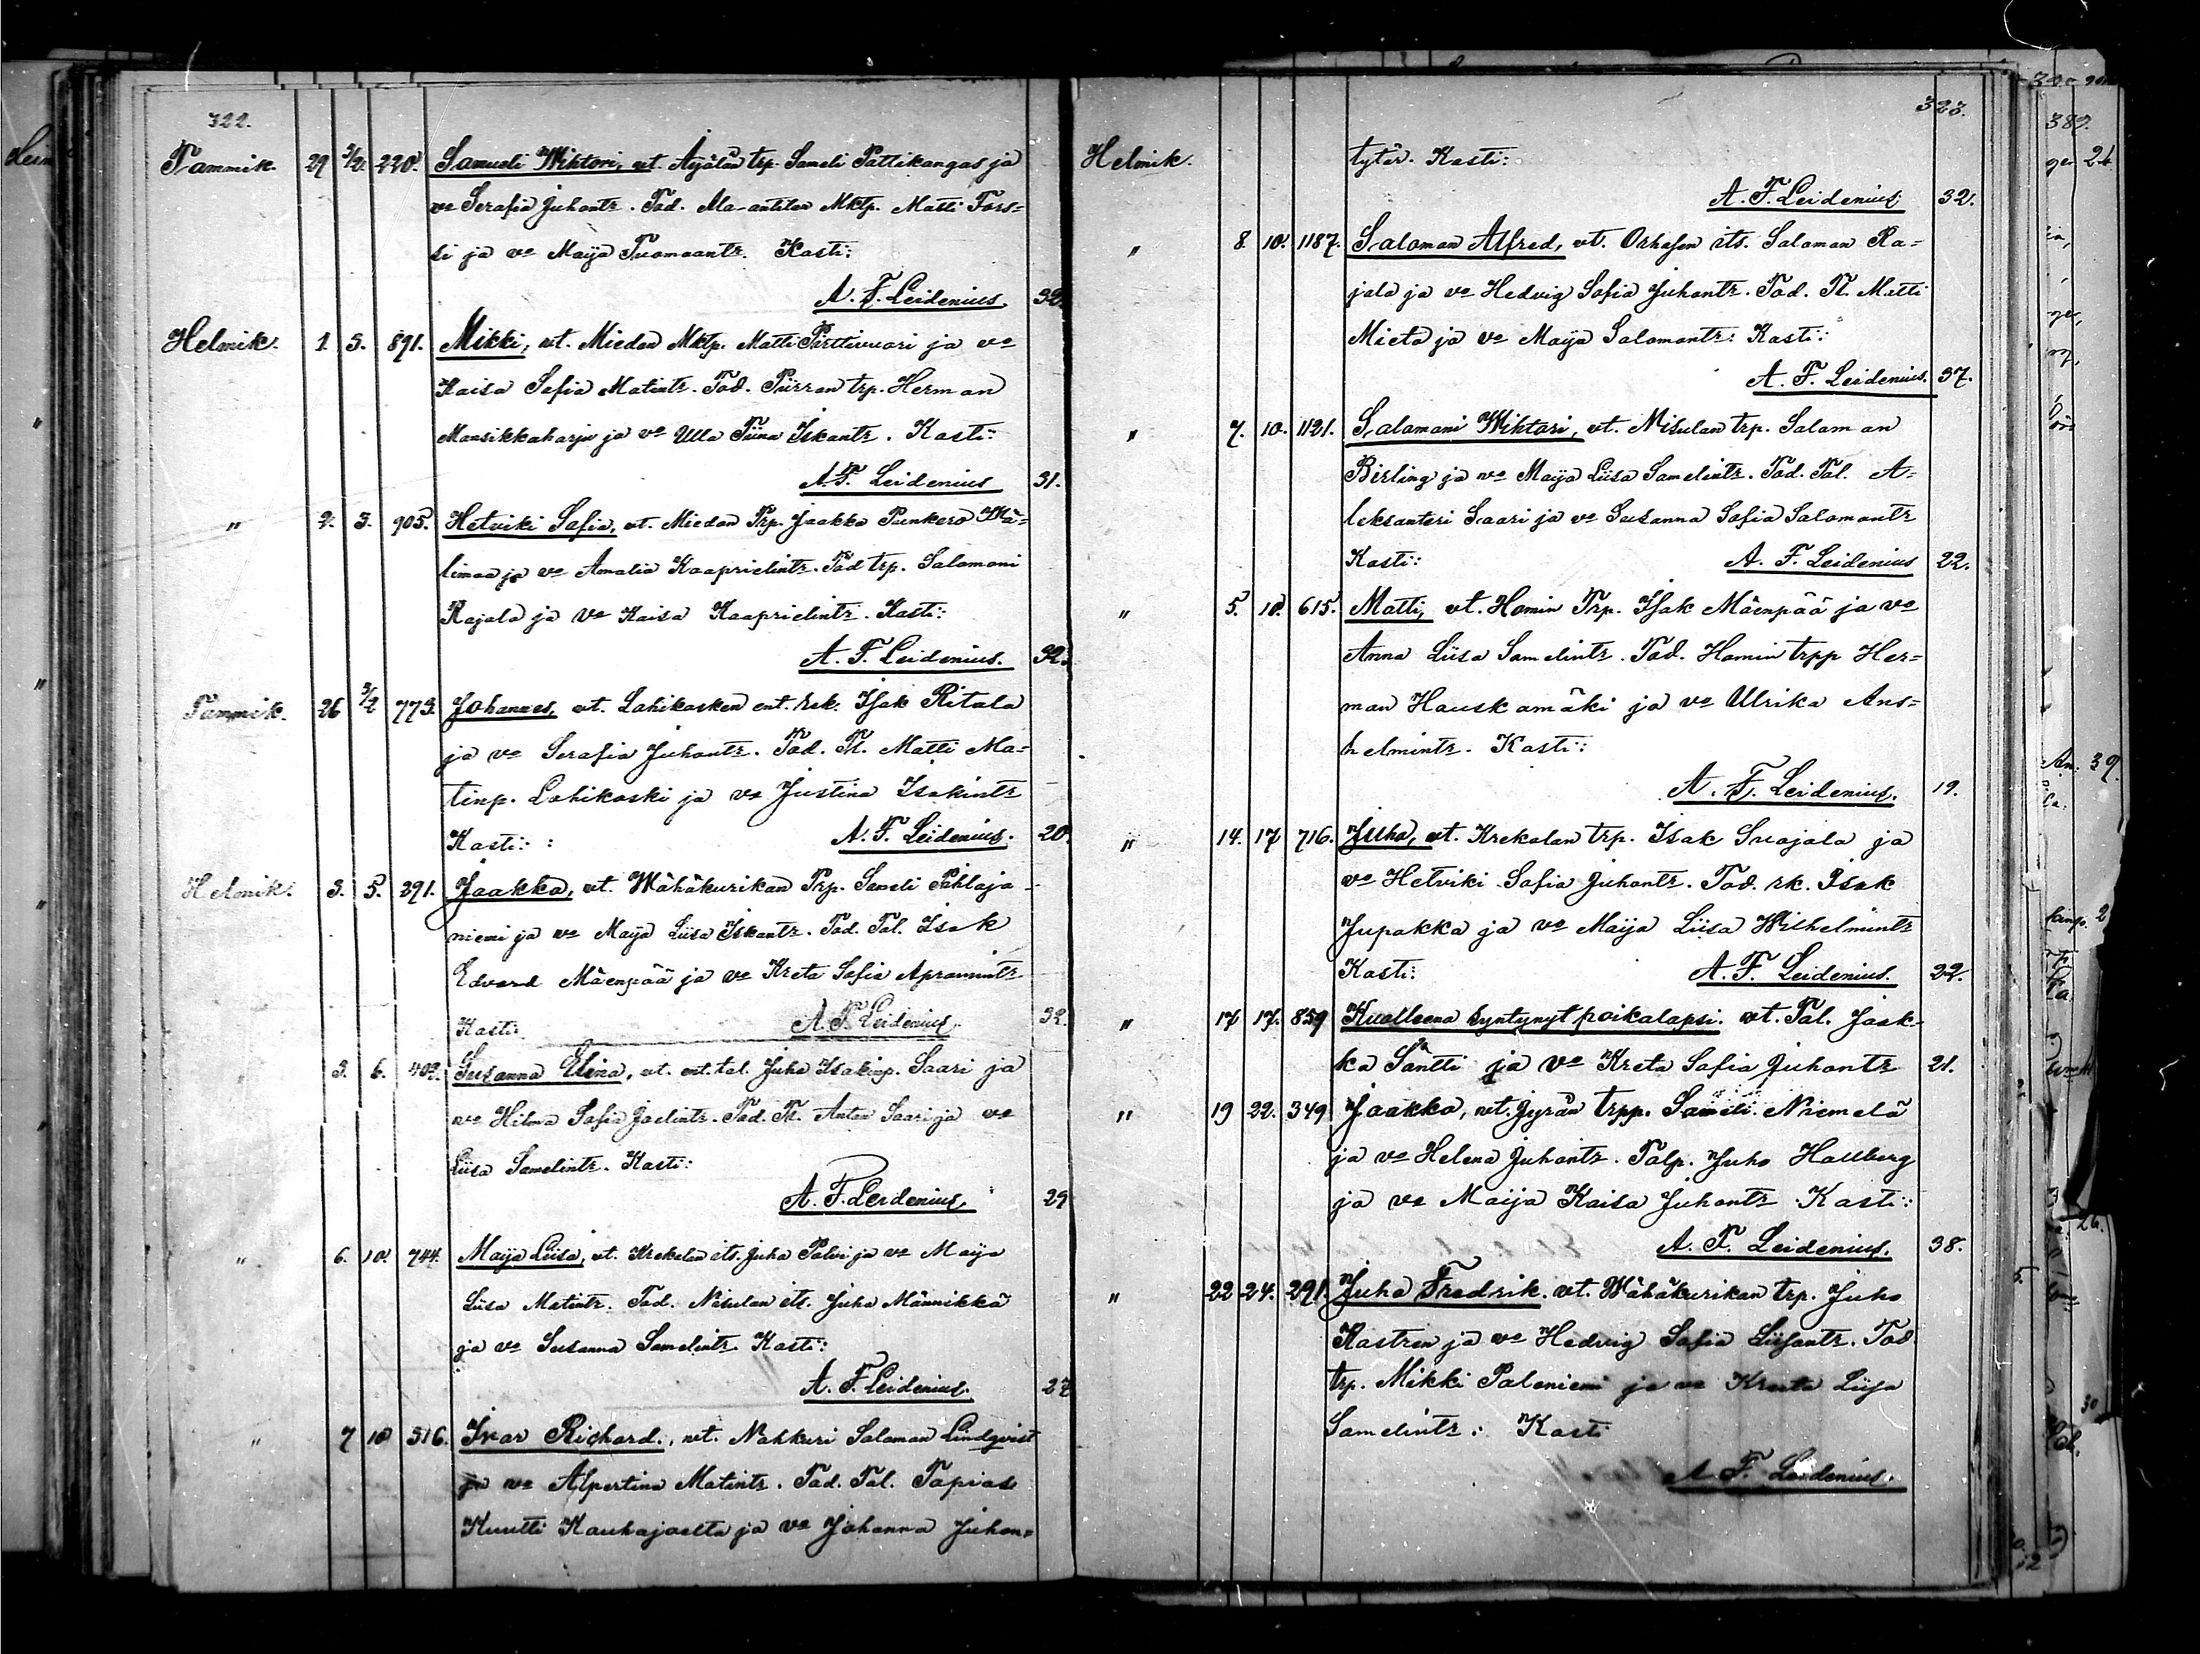 322.
Tammik. 29 3/2. 220. Samueli Wiktori, vt. Äijälän trp. Sameli Pattikangas ja
vo Serafia Juhontr. Tod. Ala-antilan Mktp. Matti Fors=
si ja vo Maija Tuomaantr. Kasti:
A. F. Leidenius. 32.
Helmik. 1 3. 891. Mikki, vt. Miedon Mktp. Matti Pirttivuori ja vo
Kaisa Sofia Matintr. Tod. Piirran trp. Herman
Mansikkaharju ja vo Ulla Tiina Iskantr. Kasti:
A. F. Leidenius 31.
" 2. 3. 905. Hetviki Sofia, vt. Miedon Trp. Jaakko Punkero Wä=
limaa ja vo Amalia Kaaprielintr. Tod trp. Salomoni
Rajala ja vo Kaisa Kaaprielintr. Kasti:
A. F. Leidenius. 32.
Tammik. 26 3/2 773. Johannes, vt. Lohikosken ent. rsk. Isak Ritala
ja vo Serafia Juhontr. Tod. Tl. Matti Ma=
tinp. Lohikoski ja vo Justina Isakintr
Kasti: A. F. Leidenius. 20.
Helmik. 3. 5. 291. Jaakko, vt. Wähäkurikan Trp. Sameli Pihlaja=
niemi ja vo Maija Liisa Iskantr. Tod. Tal. Isak
Edvard Mäenpää ja vo Kreta Sofia Apramintr
Kasti: A. F. Leidenius. 32.
" 3. 6. 402. Susanna Elina, vt. ent. tal. Juha Isakinp. Saari ja
vo Hilma Sofia Joelintr. Tod. Tl. Anton Saari ja vo
Liisa Samelintr. Kasti:
A. F. Leidenius. 29
" 6. 10. 744. Maija Liisa, vt. Krekolan its. Juha Palvi ja vo Maija
Liisa Matintr. Tod. Nisulan its. Juha Männikkö
ja vo Susanna Samelintr. Kasti:
A. F. Leidenius. 27
" 7 10 516. Ivar Richard., vt. Nahkuri Salomon Lindqvist
ja vo Alpertina Matintr. Tod. Tal. Tapias
Kuutti Kauhajoelta ja vo Johanna Juhon=
323.
Helmik. tytär. Kasti:
A. F. Leidenius. 32.
" 8. 10. 1187. Salomon Alfred, vt. its. Salomon Ra=
jala ja vo Hedvig Sofia Juhontr. Tod. Tl. Matti
Mieto ja vo Maija Salomontr: Kasti:
A. F. Leidenius. 37.
" 7. 10. 1121. Salomani Wihtori, vt. Nisulan trp. Salomon
Birling ja vo Maija Liisa Samelintr. Tod. Tal. A=
leksanteri Saari ja vo Susanna Sofia Salomontr
Kasti: A. F. Leidenius 22.
" 5. 10. 615. Matti, vt. Homin Trp. Isak Mäenpää ja vo
Anna Liisa Samelintr. Tod. Homin trpp Her=
man Hauskamäki ja vo Ulrika Ans=
helmintr. Kasti:
A. F. Leidenius. 19.
" 14. 17 716. Juho, vt. Krekolan trp. Isak Suojala ja
vo Hetviki Sofia Juhontr. Tod. rk. Isak
Jupakka ja vo Maija Liisa Wilhelmintr
Kasti: A. F. Leidenius. 22.
" 17 17. 859 Kuolleena syntynyt poikalapsi. vt. Tal. Jaak-
ko Säntti ja vo Kreta Sofia Juhontr 21.
" 19 22. 349 Jaakko, vt. Jyrän trpp. Sameli Niemelä
ja vo Helena Juhontr. Talp. Juho Hallberg
ja vo Maija Kaisa Juhontr Kasti:
A. F. Leidenius. 38.
" 22 24. 291. Juho Fredrik. vt. Wähäkurikan trp. Juho
Kastren ja vo Hedvig Sofia Tod
trp. Mikki Paloniemi ja vo Kreeta Liisa
Samelintr: Kasti
A. F. Leidenius.